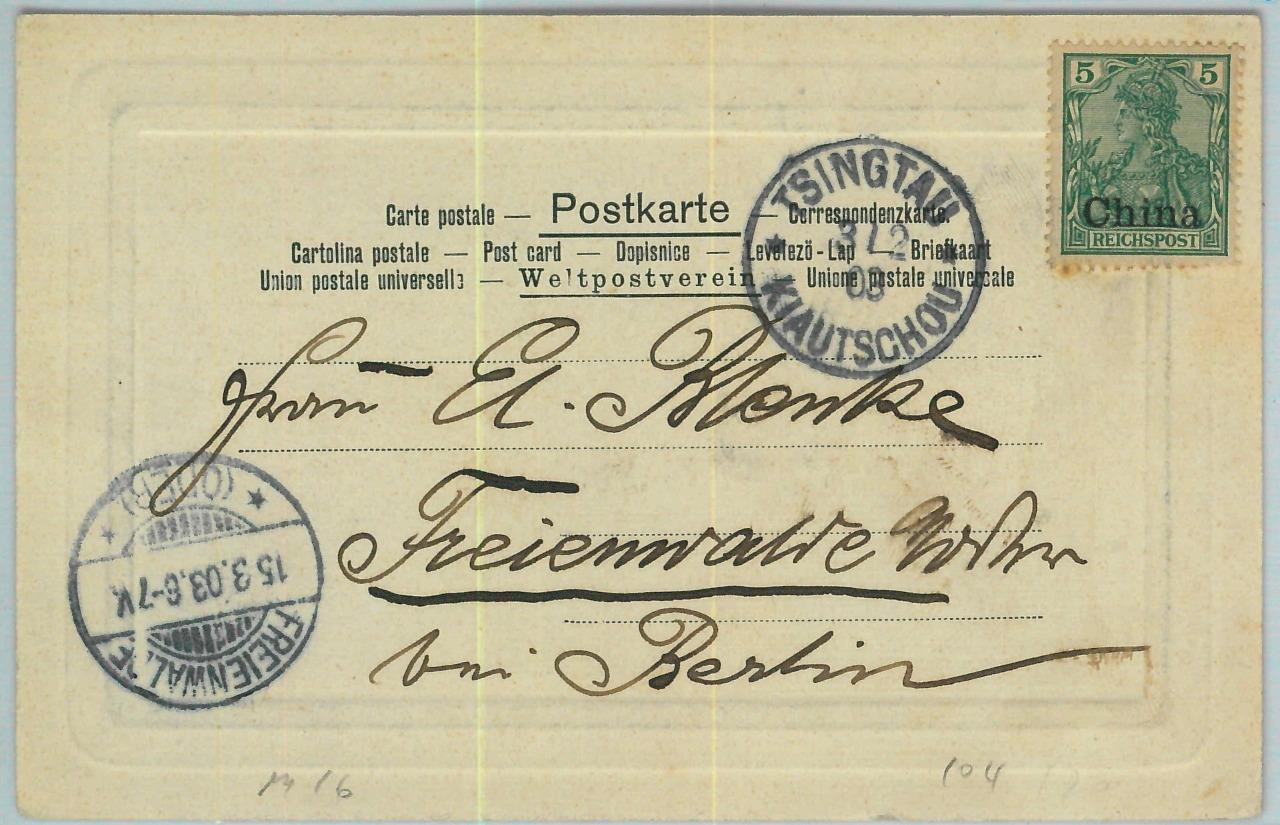 5 5
China
REICHSPOST
TSINGTAU
3 2
03
KIAUTSCHOU
Carte postale — Postkarte — Correspondenzkarte.
Cartolina postale — Post card — Dopisnice — Levelező-Lap — Briefkaart
Union postale universelle — Weltpostverein — Unione postale universale
Frau El. Blenke
Freienwalde
bei Berlin
FREIENWALDE
15.3.03.6-7N.
(ODER)
104